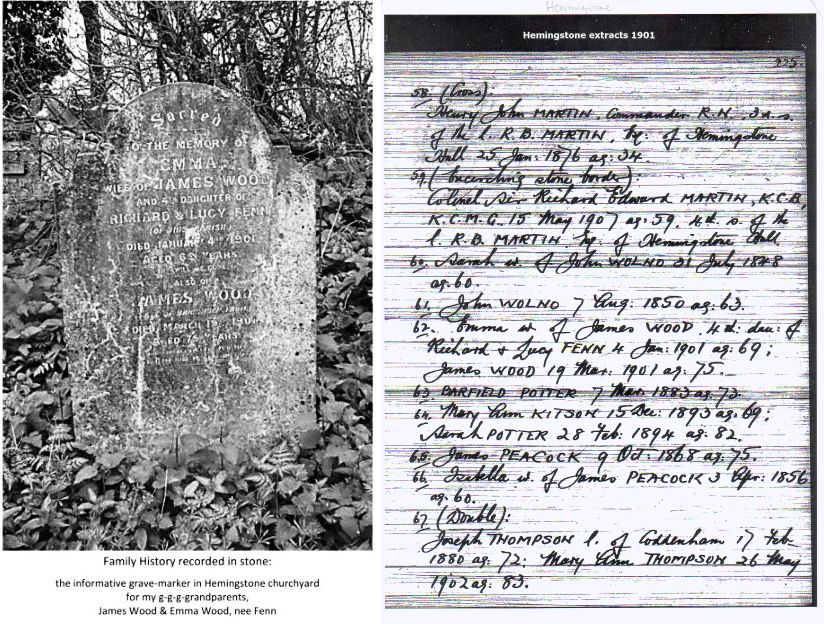 Sacred
TO THE MEMORY OF
EMMA,
WIFE OF JAMES WOOD
AND 4TH DAUGHTER OF
RICHARD & LUCY FENN
(OF THIS PARISH)
DIED JANUARY 4TH 1901
AGED 69 YEARS
ALSO OF
JAMES WOOD
DIED MARCH 19TH 1901
AGED 75 YEARS
Family History recorded in stone:
the informative grave-marker in Hemingstone churchyard
for my g-g-g-grandparents,
James Wood & Emma Wood, nee Fenn
Hemingstone
Hemingstone extracts 1901
225
58. (Cross):
Henry John MARTIN, Commander R.N., 3d. s.
of the l. R.B. MARTIN, Esq: of Hemingstone
Hall 25 Jan: 1876 ag: 34.
59 (Encircling stone border):
Colonel Sir Richard Edward MARTIN, K.C.B,
K.C.M.G. 15 May 1907 ag: 59. 4th s. of the
l. R.B. MARTIN Esq. of Hemingstone Hall
60. Sarah w. of John WOLNO 21 July 1848
ag: 60.
61. John WOLNO 7 Aug: 1850 ag: 63.
62. Emma w. of James WOOD, 4d: dau: of
Richard & Lucy FENN 4 Jan: 1901 ag: 69;
James WOOD 19 Mar: 1901 ag: 75.
63. BARFIELD POTTER 7 Mar: 1883 ag: 73.
64. Mary Ann KITSON 15 Dec: 1893 ag: 69;
Sarah POTTER 28 Feb: 1894 ag: 82.
65. James PEACOCK 9 Oct: 1868 ag: 75.
66. Isabella w. of James PEACOCK 3 Apr: 1856
ag: 60.
67 (Double):
Joseph THOMPSON l. of Coddenham 17 Feb
1880 ag: 72; Mary Ann THOMPSON 26 May
1902 ag: 83.